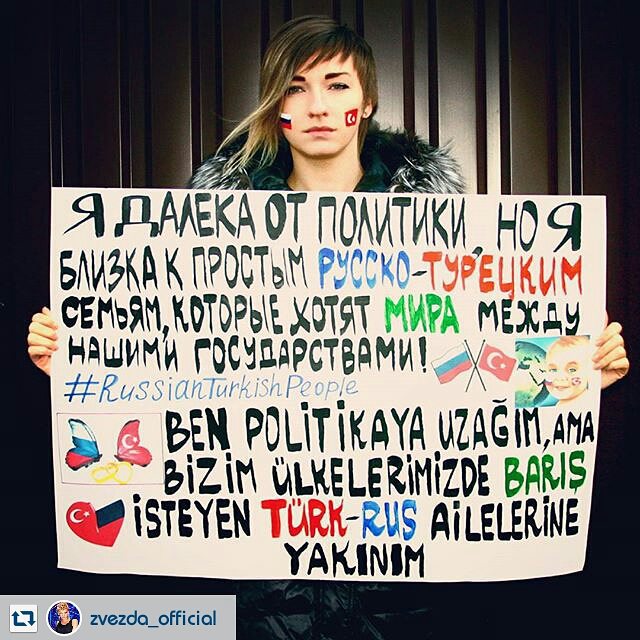 Я ДАЛЕКА ОТ ПОЛИТИКИ, НО Я
БЛИЗКА К ПРОСТЫМ РУССКО-ТУРЕЦКИМ
СЕМЬЯМ, КОТОРЫЕ ХОТЯТ МИРА МЕЖДУ
НАШИМИ ГОСУДАРСТВАМИ!
#RussianTurkishPeople
BEN POLİTİKAYA UZAĞIM, AMA
BİZİM ÜLKELERİMİZDE BARIŞ
İSTEYEN TÜRK-RUS AİLELERİNE
YAKINIM
zvezda_official